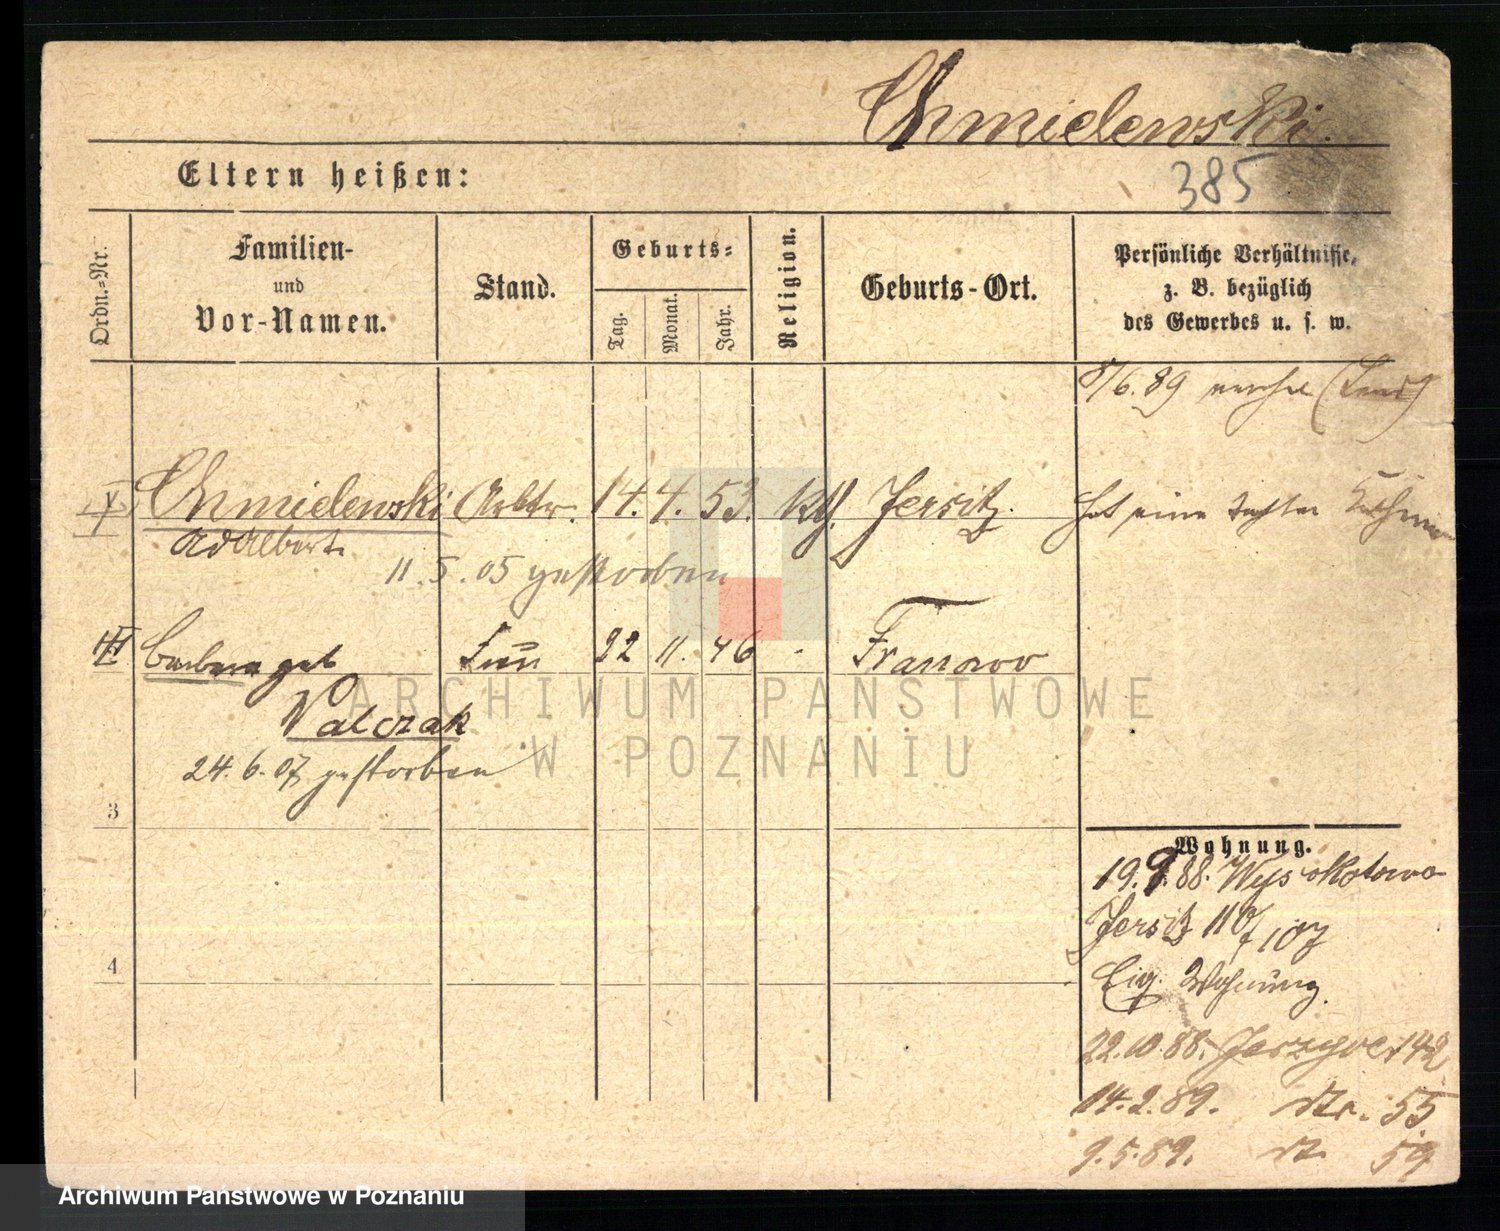 Chmielewski.
385
Eltern heißen:
Ordn.-Nr.
Familien-
und
Vor-Namen.
Stand.
Geburts-
Tag.
Monat.
Jahr.
Religion.
Geburts-Ort.
Persönliche Verhältnisse,
z. B. bezüglich
des Gewerbes u. s. w.
8/6. 89
Chmielewski Arbtr. 14. 4. 53. kth. Jersitz. Hat eine Tochter
Adalbert
11. 5. 05 gestorben
Barbara geb 22 11. 46 - Franowo
Walczak
24. 6. 07 gestorben
3
4
Wohnung.
19. 9. 88. Wysokotowo
Jersitz 110/107
Eig. Wohnung.
22. 10. 88. Jerzyce 142
14. 2. 89. 55
9. 5. 89. 59
ARCHIWUM PAŃSTWOWE
W POZNANIU
Archiwum Państwowe w Poznaniu